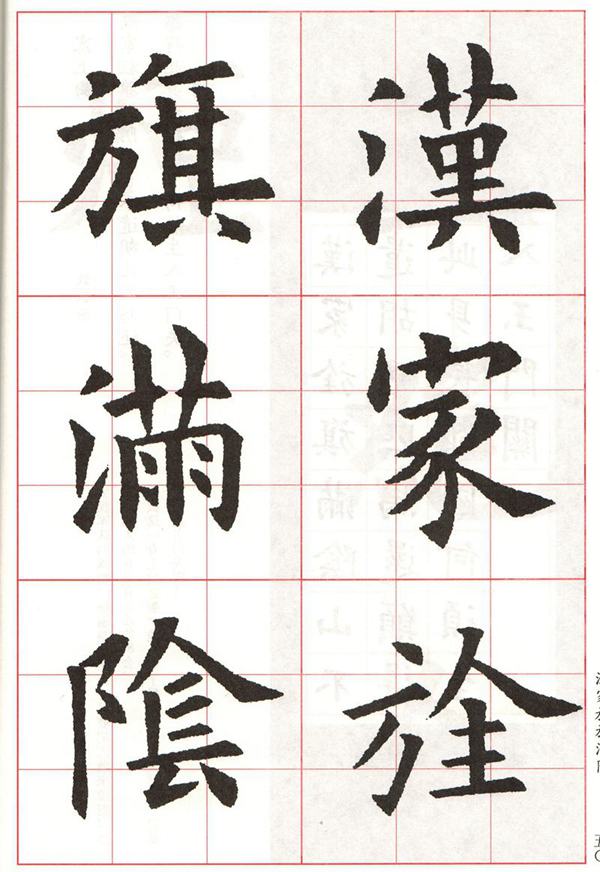 漢家旌
旗滿陰